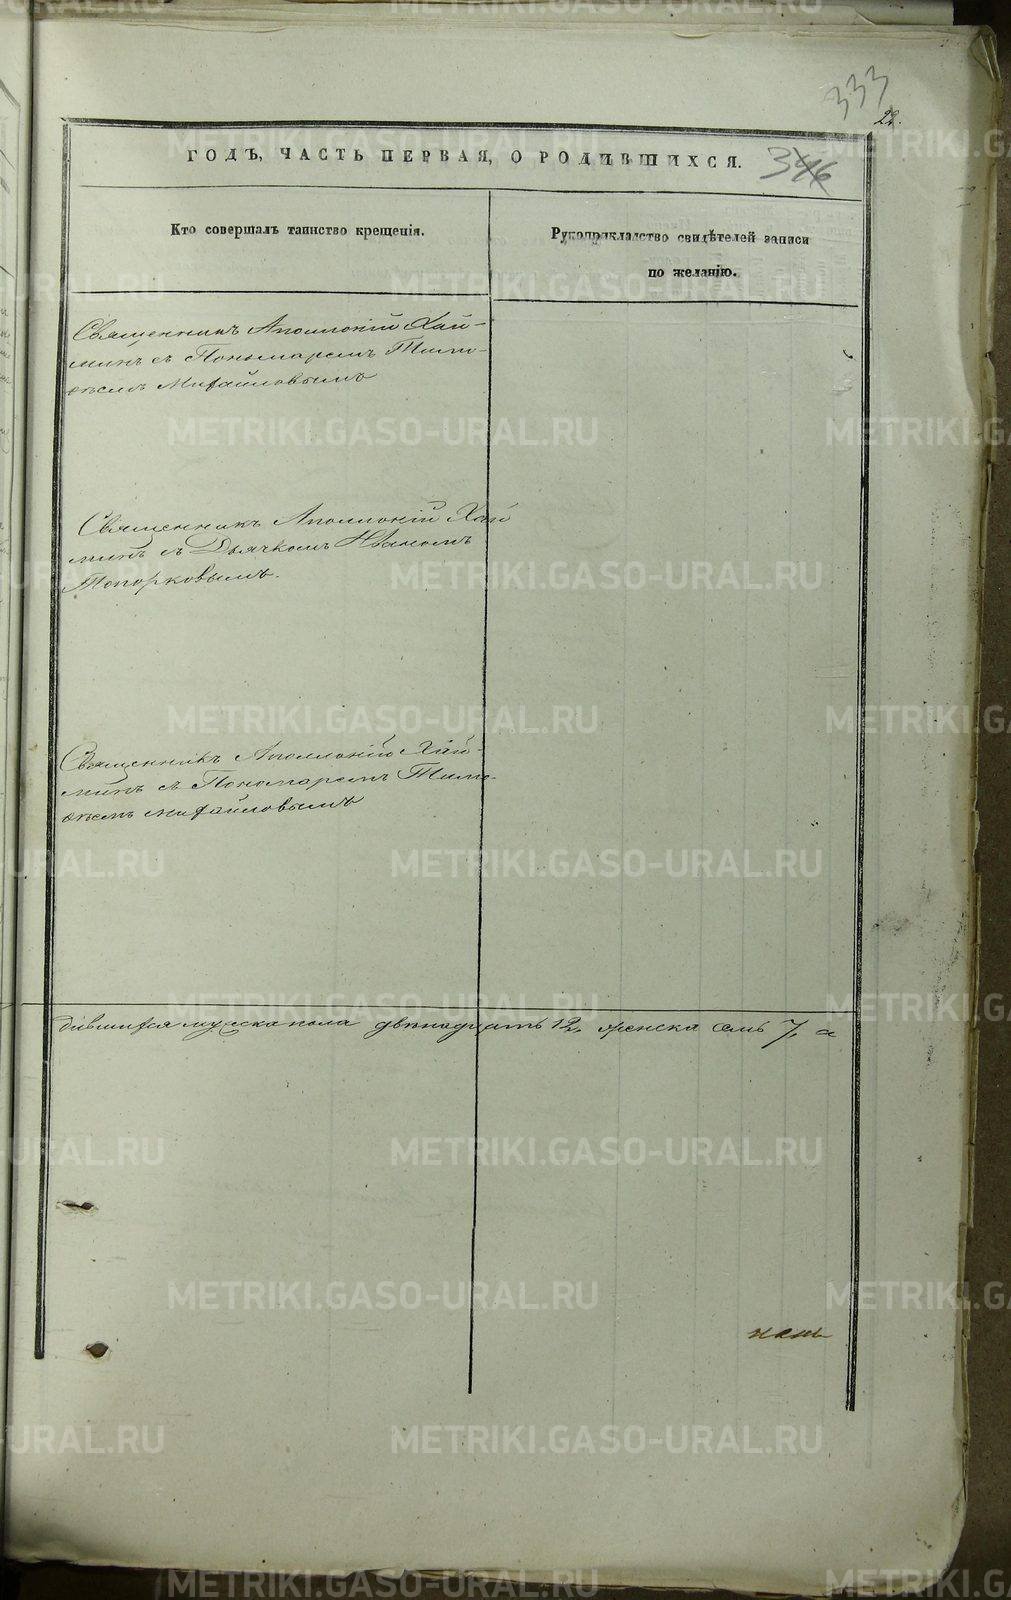 333
22.
ГОДЪ, ЧАСТЬ ПЕРВАЯ, О РОДИВШИХСЯ.
346
Кто совершалъ таинство крещенія.
Рукоприкладство свидѣтелей записи
по желанію.
Священникъ Аполлоній Хай-
минъ съ Пономаремъ Тимо-
ѳеемъ Михайловымъ
Священникъ Аполлоній Хай
минъ съ Дьячкомъ Иваномъ
Топорковымъ.
Священникъ Аполлоній Хай-
минъ съ Пономаремъ Тимо-
ѳеемъ Михайловымъ
дившихся мужска пола двенадцать 12, женска семь 7, а
METRIKI.GASO-URAL.RU